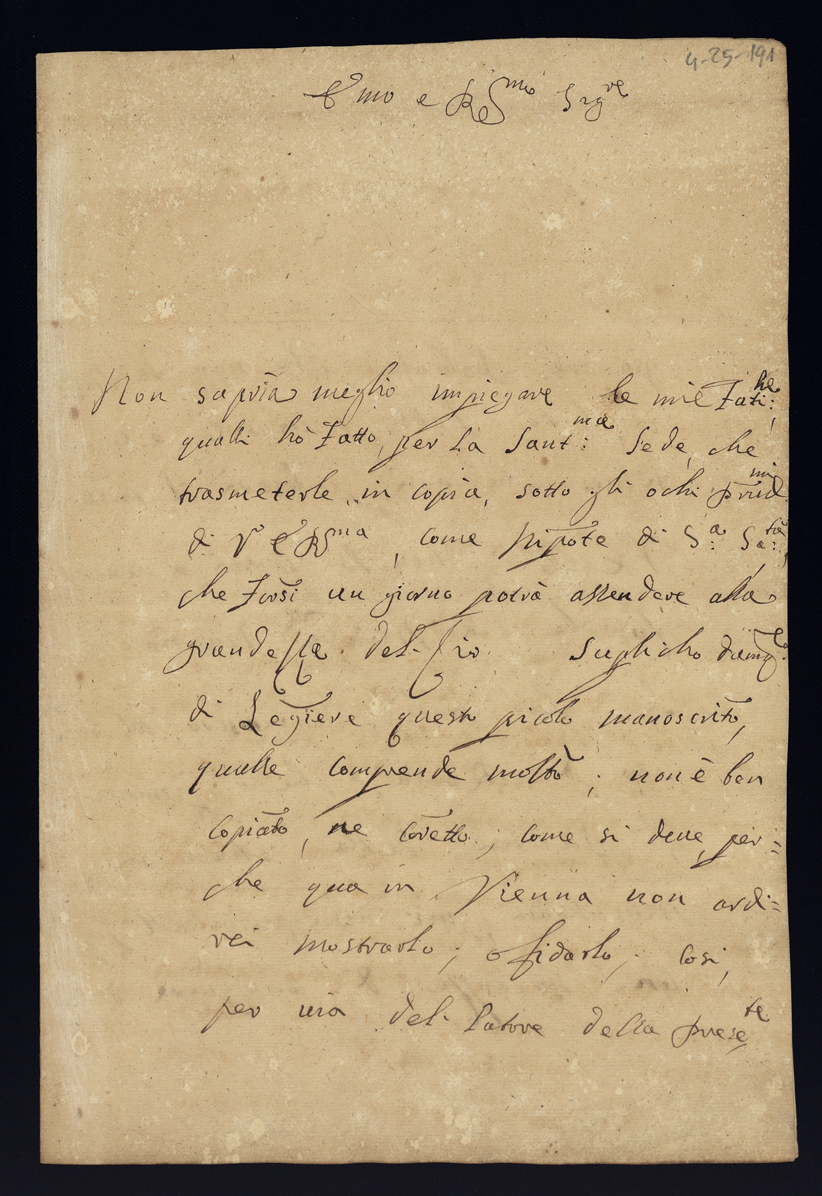 4-25-191
E^mo e R^mo Sig^re
Non sapria meglio impiegare le mie Fati:^he,
qualli hò Fatto, per la Sant:^ma Sede, che
trasmeterle, in copia, sotto gli ochi
di V E R^ma, come nipote di S:^a Sa:^tà,
che Forsi un giorno potrà assendere alla
grandezza del Zio. Suplicho
di Legiere questo picolo manoscrito,
qualle comprende molto; non è ben
copiato, ne coretto; come si deve, per=
che qua in Vienna non ardi=
rei mostrarlo; o fidarlo; così,
per via del latore della prese^te